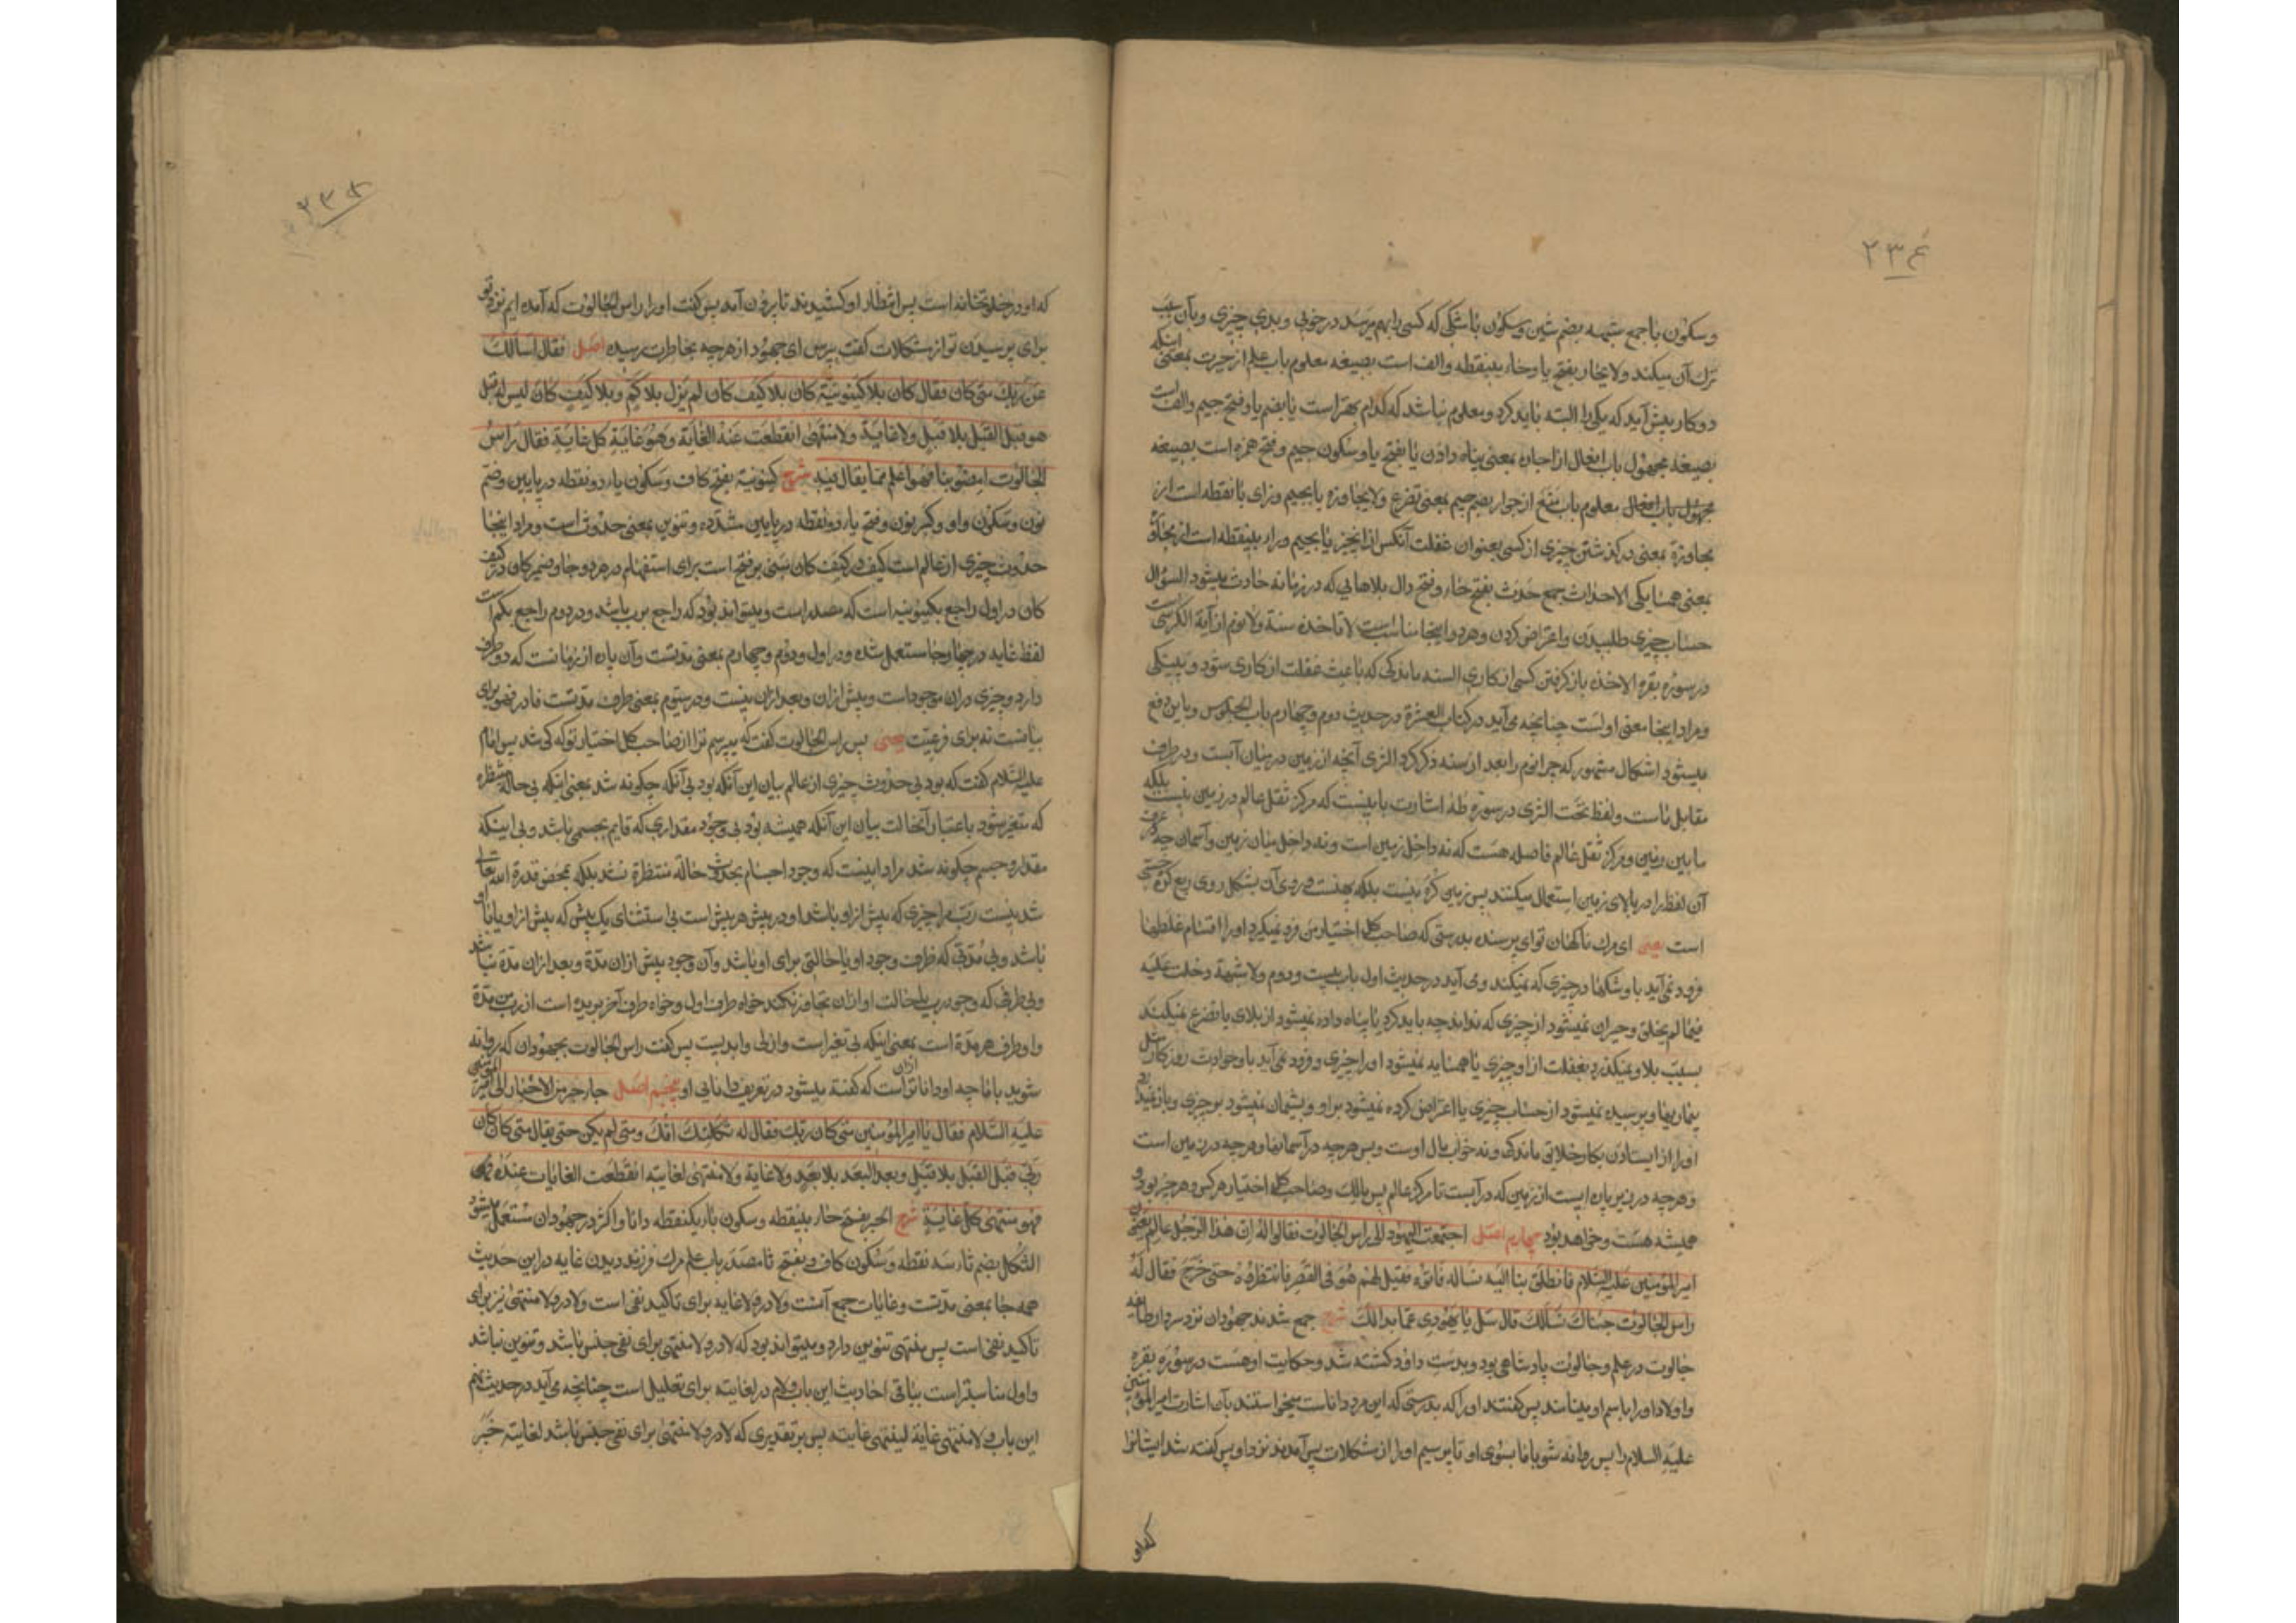 ۲۳۴
وسکون با جمع شبهه بضم شین وسکون با شکی که کسی را بهم میرسد در خوبی و بدی چیزی و بآن سبب
ترک آن میکند ولا یحار بفتح یا وحاء بینقطه والف است بصیغه معلوم باب علم از حیرت بمعنی اینکه
دو کار پیش آید که یکی را البته باید کرد و معلوم نباشد که کدام بهتر است یا بضم یا وفتح جیم والف است
بصیغه مجهول باب افعال از اجاره بمعنی پناه دادن یا بفتح یا وسکون جیم وفتح همزه است بصیغه
معلوم باب منع از جوار بضم جیم بمعنی تضرع ولا یجاوزه یا بجیم وزای با نقطه است از
مجاوزة بمعنی در گذشتن چیزی از کسی بعنوان غفلت آنکس از آنچیز یا بجیم وراء بینقطه است از مجاورة
بمعنی همسایکی الاحداث جمع حدث بفتح حاء وفتح دال بلاهایی که در زمانه حادث میشود السؤال
حساب چیزی طلبیدن واعتراض کردن وهر دو اینجا مناسب است لا تاخذه سنة ولا نوم از آیة الکرسی است
در سوره بقره الاخذ باز کرفتن کسی از کاری السنه ماندکی که باعث غفلت از کاری شود و پینکی
ومراد اینجا معنی اولست چنانچه می آید در کتاب العشرة در حدیث دوم وچهارم باب الجلوس وباین دفع
میشود اشکال مشهور که چرا نوم را بعد از سنه ذکر کرد الثری آنچه از زمین در میان آبست ودر طرف
مقابل ماست ولفظ تحت الثری در سوره طه اشارت باینست که مرکز ثقل عالم در زمین نیست بلکه
مابین زمین ومرکز ثقل عالم فاصله هست که نه داخل زمین است ونه داخل میان زمین وآسمان چه در عرف
آن لفظ را در بالای زمین استعمال میکنند پس زمین کره نیست بلکه پهنست و روی آن بشکل روی ربع کره
است یعنی ای مرک ناکهان توای پرسنده بدرستی که صاحب کل اختیار من فرو نمیکیرد او را اقسام غلطها
فرود نمی آید باو شکها در چیزی که میکند ومی آید در حدیث اول باب بیست ودوم ولا شبهة دخلت علیه
فیما لم یخلق وحیران نمیشود از چیزی که نداند چه باید کرد یا پناه داده نمیشود از بلای یا تضرع نمیکند
بسبب بلا ونمیکذرد بغفلت از او چیزی یا همسایه نمیشود او را چیزی وفرود نمی آید باو حوادث روزکار مثل
بیماریها وپرسیده نمیشود از حساب چیزی یا اعتراض کرده نمیشود بر او وپشیمان نمیشود بر چیزی وباز نمیدارد
او را از ایستادن بکار خلایق ماندکی ونه خواب مال اوست وبس هرچه در آسمانها وهرچه در زمین است
وهرچه در زیر پاره ایست از زمین که در آبست تا مرکز عالم پس مالک وصاحب کل اختیار هر کس وهر چیز بوده و
همیشه هست وخواهد بود چهارم اصل اجتمعت الیهود الی راس الجالوت فقالوا له ان هذا الرجل عالم یعنون
امیر المؤمنین علیه السلام فانطلق بنا الیه نساله فاتوه فقیل لهم هو فی القصر فانتظروه حتی خرج فقال له
راس الجالوت جئناک نسألک قال سل یا یهودی عما بدا لک شرح جمع شدند جهودان نزد سردار طایفه
جالوت در علم وجالوت پادشاهی بود وبدست داود کشته شد وحکایت او هست در سوره بقره
واولاد او را باسم او مینامند پس کفتند او را که بدرستی که این مرد داناست میخواستند بآن اشارت امیر المؤمنین
علیه السلام را پس روانه شو با ما بسوی او تا پرسیم او را از مشکلات پس آمدند نزد او پس کفته شد ایشانرا
که او
۲۳۵
که او در خلوتخانه است پس انتظار او کشیدند تا برون آمد پس کفت او را راس الجالوت که آمده ایم نزد تو
برای پرسیدن تو از مشکلات کفت بپرس ای جهود از هرچه بخاطرت رسیده اصل فقال اسألک
عن ربک متی کان فقال کان بلا کینونیة کان بلا کیف کان لم یزل بلا کم وبلا کیف کان لیس له قبل
هو قبل القبل بلا قبل ولا غایة ولا منتهی انقطعت عنه الغایة وهو غایة کل غایة فقال راس
الجالوت امضوا بنا فهو اعلم مما یقال فیه شرح کینونیة بفتح کاف وسکون یاء دو نقطه در پایین وضم
نون وسکون واو وکسر نون وفتح یاء دو نقطه در پایین مشدده وتنوین بمعنی حدوث است ومراد اینجا
حدوث چیزی از عالم است کیف در کیف کان مبنی بر فتح است برای استفهام در هر دو جا وضمیر کان در کیف
کان در اول راجع بکینونیه است که مصدر است ومیتواند بود که راجع برب باشد ودر دوم راجع بکم است
لفظ غایه در چهار جا مستعمل شده ودر اول ودوم وچهارم بمعنی مدتست وآن پاره از زمانست که دو طرف
دارد وچیزی در آن موجود است وپیش از آن وبعد از آن نیست ودر سیوم بمعنی طرف مدتست فا در فهو برای
بیانست نه برای فرعیت یعنی پس راس الجالوت کفت که میپرسم ترا از صاحب کل اختیار تو که کی شد پس امام
علیه السلام کفت که بود بی حدوث چیزی از عالم بیان این آنکه بود بی آنکه چکونه شد بمعنی اینکه بی حالة منتظره
که متغیر شود باعتبار آنحالت بیان این آنکه همیشه بود بی وجود مقداری که قایم بجسمی باشد وبی اینکه
مقدار وجسم چکونه شد مراد اینست که وجود اجسام بحدوث حالة منتظرة نشد بلکه بمحض قدرة الله تعالی
شد نیست رب مرا چیزی که پیش از او باشد او در پیش هر پیش است بی استثنای یک پیش که پیش از او یا با او
باشد وبی مدتی که ظرف وجود او یا حالتی برای او باشد وآن وجود پیش از آن مدة وبعد از آن مدة نباشد
وبی طرفی که وجود رب یا حالت او از آن تجاوز نکند خواه طرف اول وخواه طرف آخر بریده است از رب من مدة
واو طرف هر مدة است بمعنی اینکه بی تغیر است وازلی وابدیست پس کفت راس الجالوت بجهودان که روانه
شوید با ما چه او داناتر از آن است که کفته میشود در تعریف دانایی او پنجم اصل جاء حبر من الاحبار الی امیر المؤمنین
علیه السلام فقال یا امیر المؤمنین متی کان ربک فقال له ثکلتک امک ومتی لم یکن حتی یقال متی کان کان
ربی قبل القبل بلا قبل وبعد البعد بلا بعد ولا غایة ولا منتهی لغایته انقطعت الغایات عنده
فهو منتهی کل غایة شرح الحبر بفتح حاء بینقطه وسکون باء یکنقطه دانا واکثر در جهودان مستعمل میشود
الثکل بضم ثاء سه نقطه وسکون کاف وبفتح ثا مصدر باب علم مرک فرزند دیدن غایه در این حدیث
همه جا بمعنی مدتست وغایات جمع آنست ولا در ولا غایه برای تاکید نفی است ولا در ولا منتهی نیز برای
تاکید نفی است پس منتهی تنوین دارد ومیتواند بود که لا در ولا منتهی برای نفی جنس باشد وتنوین نباشد
واول مناسبتر است بباقی احادیث این باب ولام در لغایته برای تعلیل است چنانچه می آید در حدیث
این باب ولا منتهی غایة لینتهی غایته پس بر تقدیری که لا در ولا منتهی برای نفی جنس باشد لغایته خبر